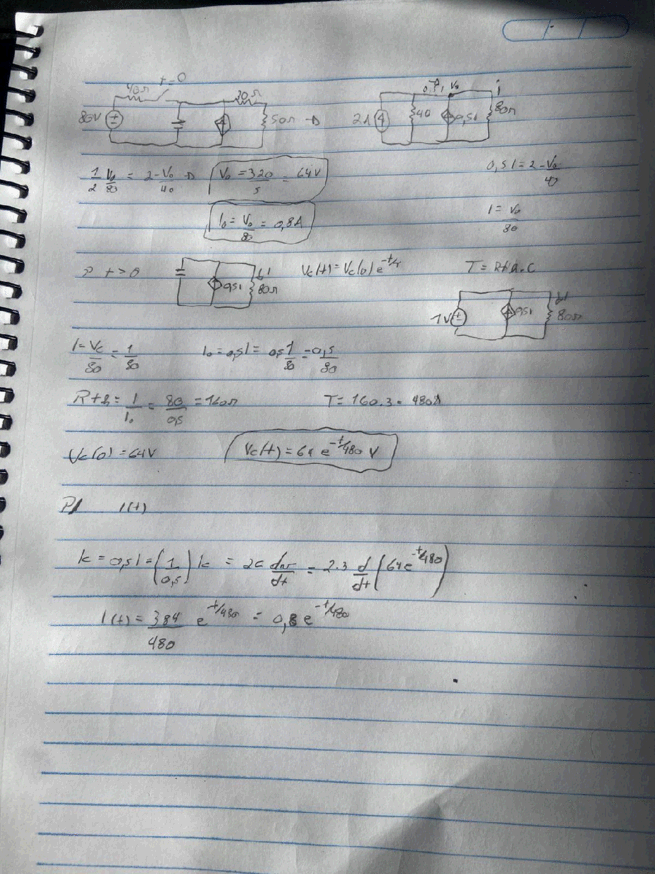 40Ω t=0 30Ω
80V 50Ω
2A 40 v₀ 0,5i i 80Ω
1/2 v₀/80 = 2-v₀/40 → V₀ = 320/5 = 64V 0,5i = 2-v₀/40
i₀ = v₀/80 = 0,8A i = v₀/80
P t>0 0,5i 80Ω Vc(t) = Vc(0) e^-t/τ T = Rth.C
1V 0,5i 80Ω
i = Vc/80 = 1/80 i₀ = 0,5i = 0,5 1/80 = 0,5/80
Rth = 1/i₀ = 80/0,5 = 160Ω T = 160.3 = 480s
Vc(0) = 64V Vc(t) = 64 e^-t/480 V
P/ i(t)
ic = 0,5i = (1/0,5) ic = 2C dv/dt = 2.3 d/dt (64e^-t/480)
i(t) = 384/480 e^-t/480 = 0,8 e^-t/480